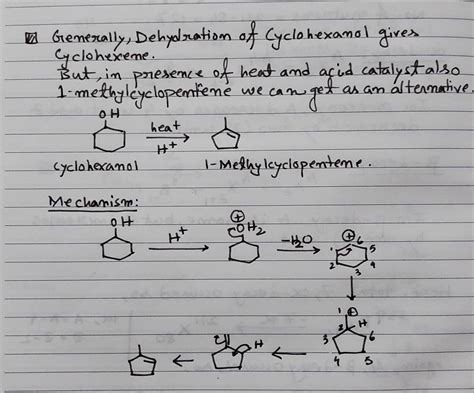 Generally, Dehydration of Cyclohexanol gives
Cyclohexene.
But, in presence of heat and acid catalyst also
1-methylcyclopentene we can get as an alternative.
OH
heat
H+
cyclohexanol
1-Methylcyclopentene.
Mechanism:
OH
H+
⊕
OH2
-H2O
⊕
1 6 5
2 3 4
1 ⊕
2 H
3 6
4 5
H